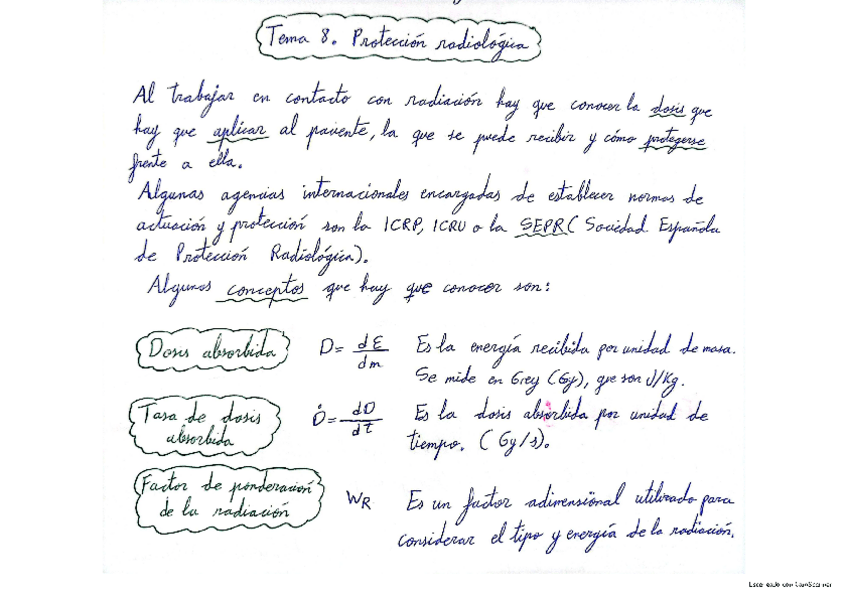 Tema 8. Protección radiológica
Al trabajar en contacto con radiación hay que conocer la dosis que
hay que aplicar al paciente, la que se puede recibir y cómo protegerse
frente a ella.
Algunas agencias internacionales encargadas de establecer normas de
actuación y protección son la ICRP, ICRU o la SEPR (Sociedad Española
de Protección Radiológica).
Algunos conceptos que hay que conocer son:
Dosis absorbida D = dE/dm Es la energía recibida por unidad de masa.
Se mide en Grey (Gy), que son J/Kg.
Tasa de dosis absorbida Ḋ = dD/dt Es la dosis absorbida por unidad de
tiempo. (Gy/s).
Factor de ponderación de la radiación WR Es un factor adimensional utilizado para
considerar el tipo y energía de la radiación.
Escaneado con CamScanner